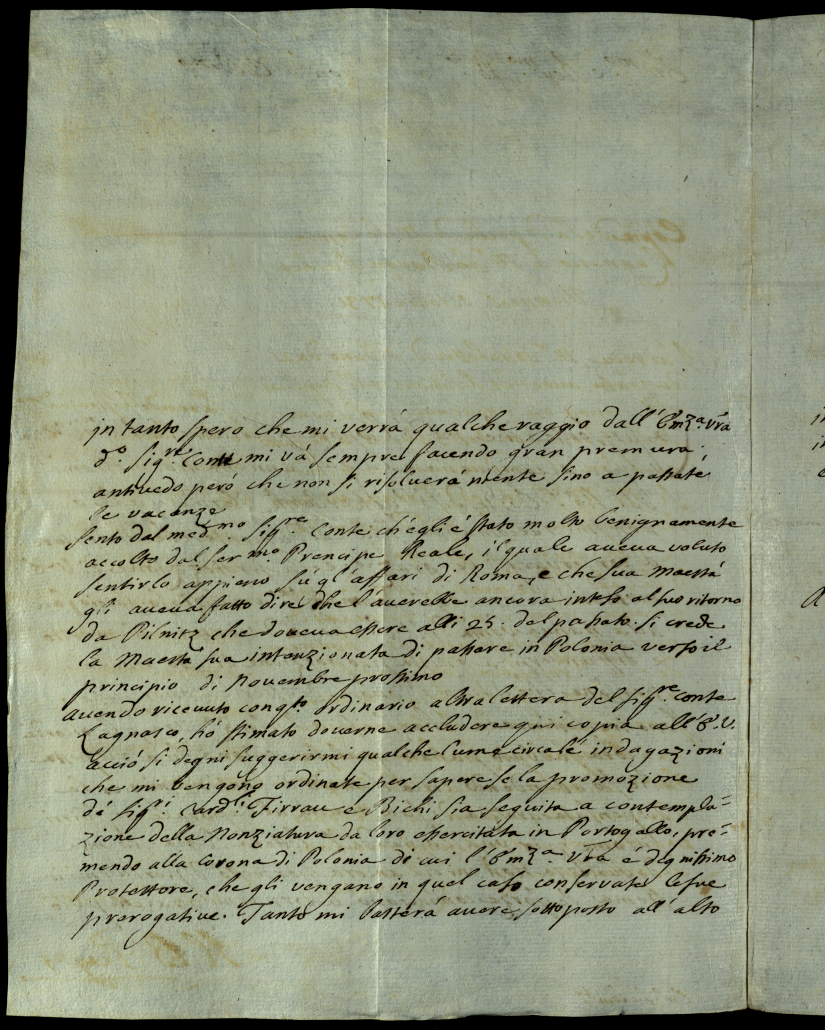 in tanto spero che mi verrá qualche raggio dall' Em.za vr̃a
d.o Sig.re Conte mi vá sempre facendo gran premura;
antivedo peró che non si risolverá niente sino a passate
le vacanze
sento dal med.mo Sig.re Conte ch'egli é stato molto benignamente
accolto dal Ser.mo Prencipe Reale, il quale aveva voluto
sentirlo appieno sú gl'affari di Roma, e che Sua Maestá
gli aveva fatto dire che l'averebbe ancora inteso al suo ritorno
da Pilnitz che doveva essere alli 25. del passato. si crede
la Maestá sua intenzionata di passare in Polonia verso il
principio di Novembre prossimo
avendo ricevuto con q.sto ordinario altra lettera del Sig.re Conte
Lagnasco, hó stimato doverne accludere qui copia all' E. V.
acció si degni suggerirmi qualche lume circa le indagazioni
che mi vengono ordinate per sapere se la promozione
dé Sig.ri Card.li Firrau e Bichi sia seguita a contempla=
zione della Nonziatura da loro essercitata in Portogallo, pre=
mendo alla Corona di Polonia di cui l' Em.za Vr̃a é degnissimo
Protettore, che gli vengano in quel caso conservate le sue
prerogative. Tanto mi basterá avere sottoposto all' alto